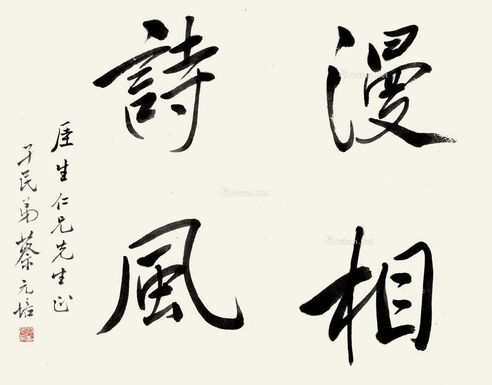 漫相
詩風
厓生仁兄先生正
孑民弟蔡元培